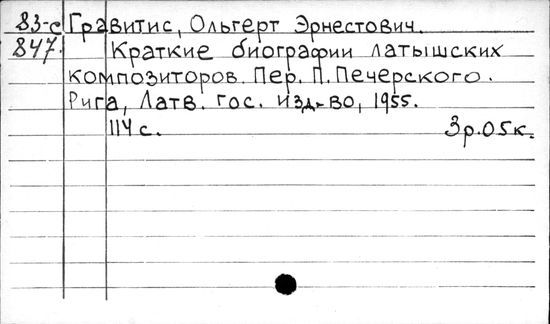 83-с Гравитис, Ольгерт Эрнестович.
847. Краткие биографии латышских
композиторов. Пер. П. Печерского.
Рига, Латв. гос. изд-во, 1955.
114 с. 3р.05к.